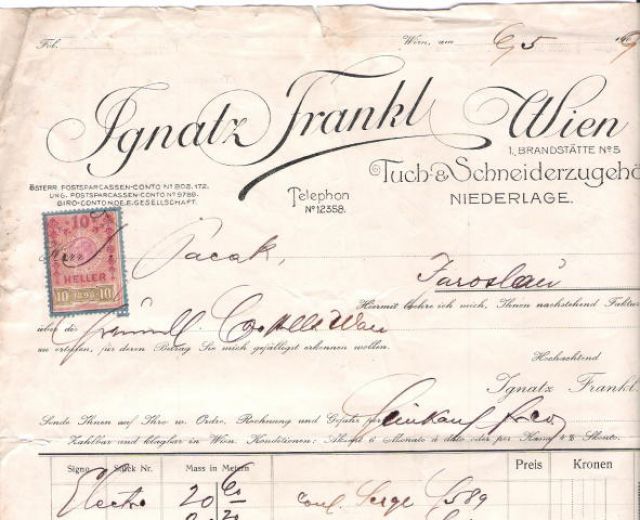 Fol. Wien, am 6/5 19
Ignatz Frankl Wien
I, BRANDSTÄTTE No 5
Tuch- & Schneiderzugehö
NIEDERLAGE.
ÖSTERR. POSTSPARCASSEN-CONTO No 802.172.
UNG. POSTSPARCASSEN-CONTO No 9789.
GIRO-CONTO N.OE.E. GESELLSCHAFT.
Telephon
No 12358.
10
HELLER
10 1898 10
Herr J. Pacak,
Jaroslau
Hiermit beehre ich mich, Ihnen nachstehend Faktur
über die
zu erteilen, für deren Betrag Sie mich gefälligst erkennen wollen.
Hochachtend
Ignatz Frankl.
Sende Ihnen auf Ihre w. Ordre, Rechnung und Gefahr per
Zahlbar und klagbar in Wien. Konditionen: Akzept 6 Monate à dato oder per Kassa 4% Skonto.
Signo Stück Nr. Mass in Metern Preis Kronen
Electro 20 60 Serge 589
20